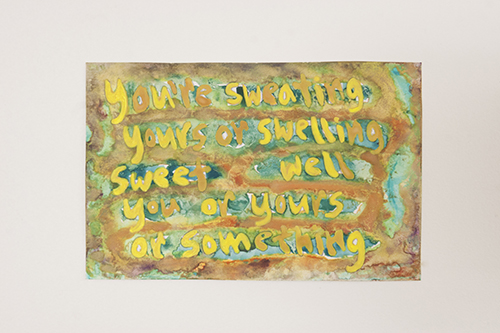 you're sweating
yours or swelling
sweet well
you or yours
or something